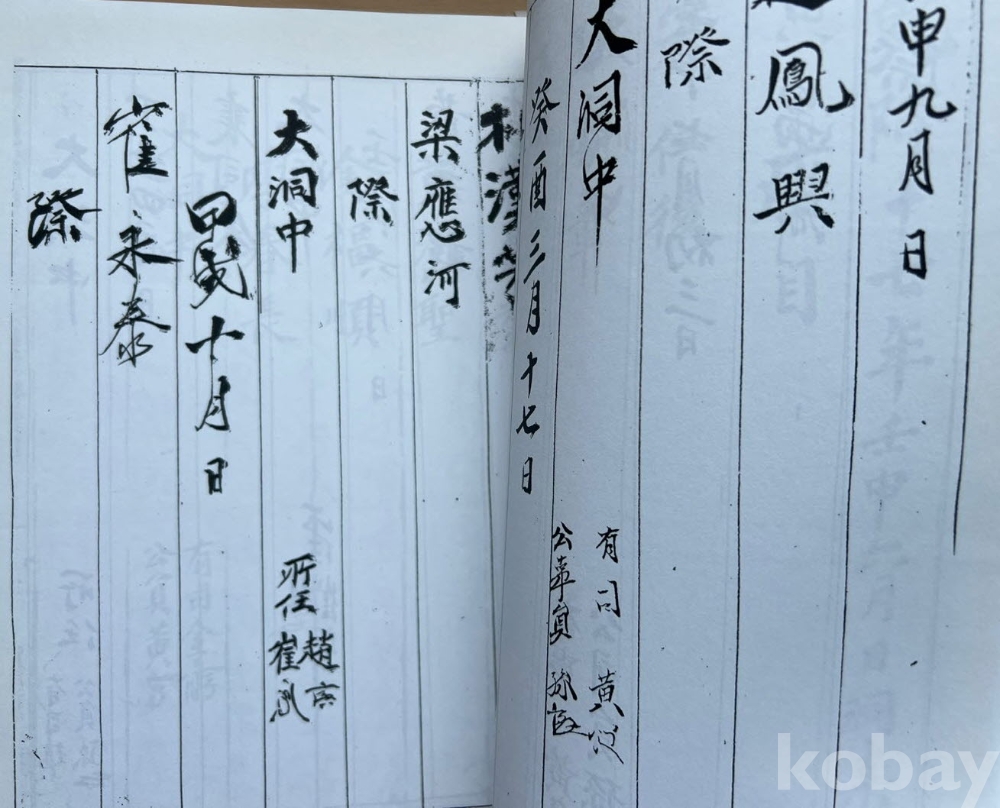 申九月日
鳳興
際
大洞中
有司 黃
癸酉三月十七日
公事員 孫
漢
梁應河
際
大洞中
所任 趙
崔
甲戌十月日
崔永泰
際
kobay